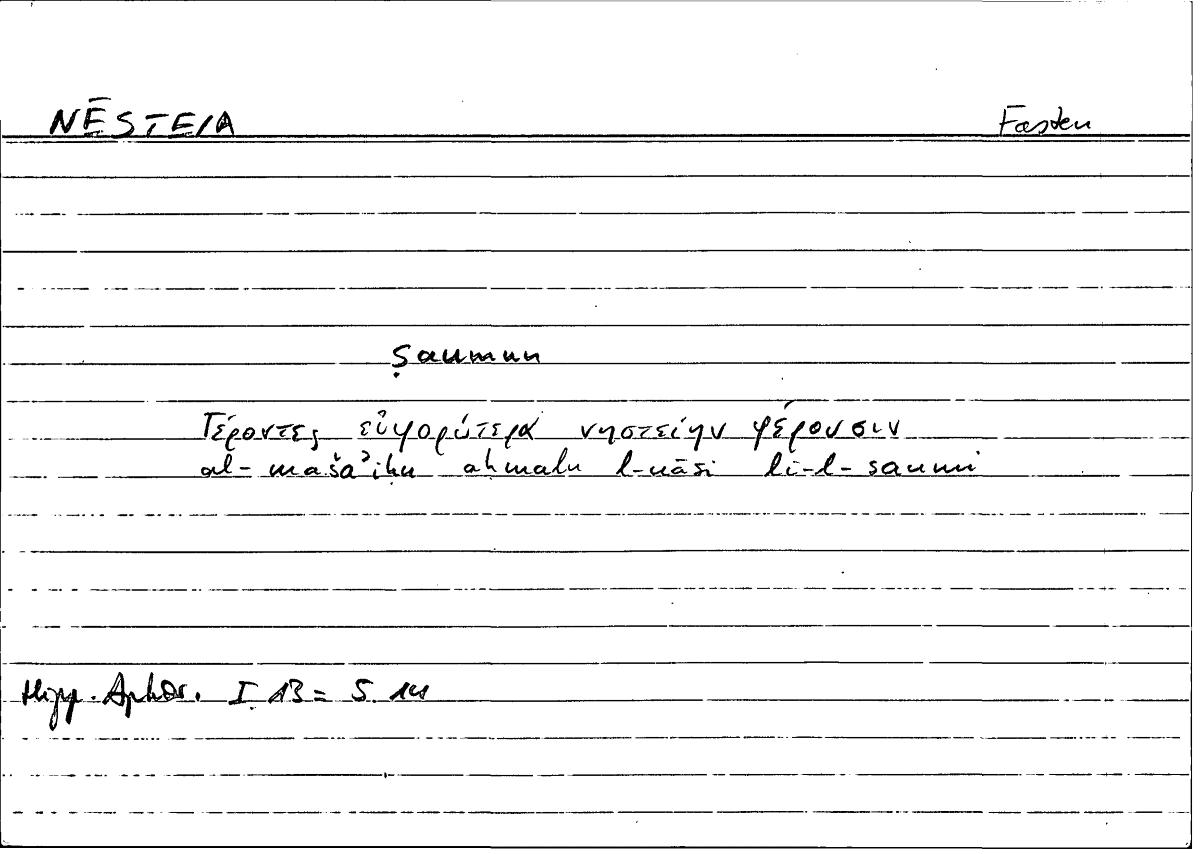 NĒSTEIA Fasten
ṣaumun
Γέροντες εὐφορώτερα νηστείην φέρουσιν
al-mašāʾiḫu aḥmalu l-nāsi li-l-ṣaumi
Hipp. Aphor. I 13 = 5.